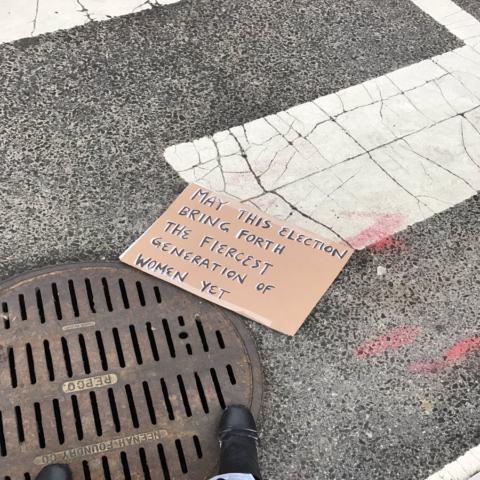 MAY THIS ELECTION
BRING FORTH
THE FIERCEST
GENERATION OF
WOMEN YET
REPCO
NEENAH FOUNDRY CO